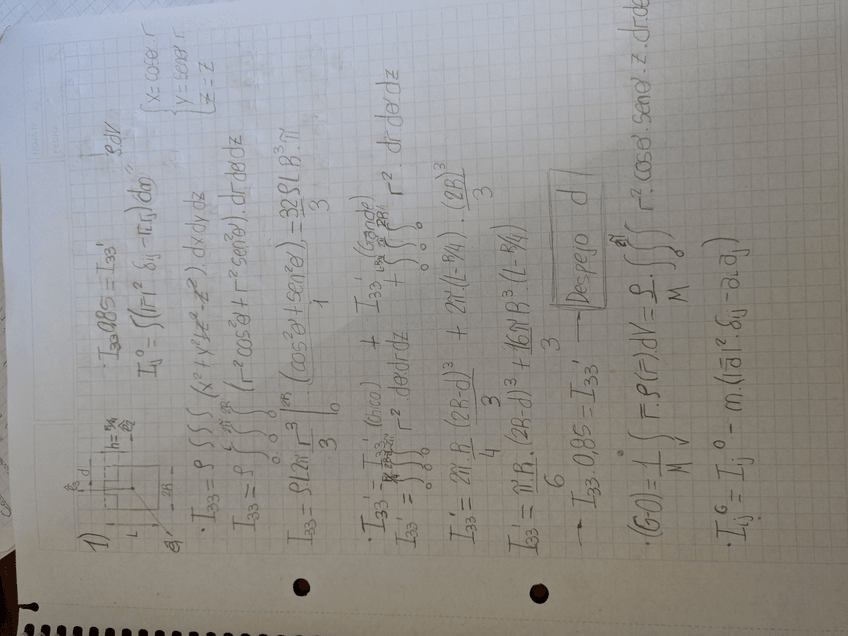 1)
L
h=R/4
d
2R
· I₃₃ 0,85 = I₃₃'
Iij⁰ = ∫(|r̄|² δij - ri.rj) dm
ρdV
{ x = cosθ.r
y = senθ.r
z = z
· I₃₃ = ρ ∫∫∫ (x²+y²+z²-z²).dxdydz
I₃₃ = ρ ∫∫∫ (r²cos²θ + r²sen²θ).drdθdz
I₃₃ = ρL2π r³/3 |₀²ᴿ . (cos²θ+sen²θ) = 32/3 ρLR³.π
1
· I₃₃' = I₃₃' (chico) + I₃₃' (Grande)
I₃₃' = ∫∫∫ r².dθdrdz + ∫∫∫ r² drdθdz
I₃₃' = 2π.R/4 . (2R-d)³/3 + 2π.(L-R/4).(2R)³/3
I₃₃' = πR/6 . (2R-d)³ + 16/3 πR³.(L-R/4)
→ I₃₃.0,85 = I₃₃' → Despejo d
· (G-O) = 1/M ∫v r̄.ρ(r̄)dV = ρ/M . ∫∫∫ r².cosθ.senθ.z.drdθ
· Iijᴳ = Iij⁰ - m.(|ā|².δij - ai.aj)